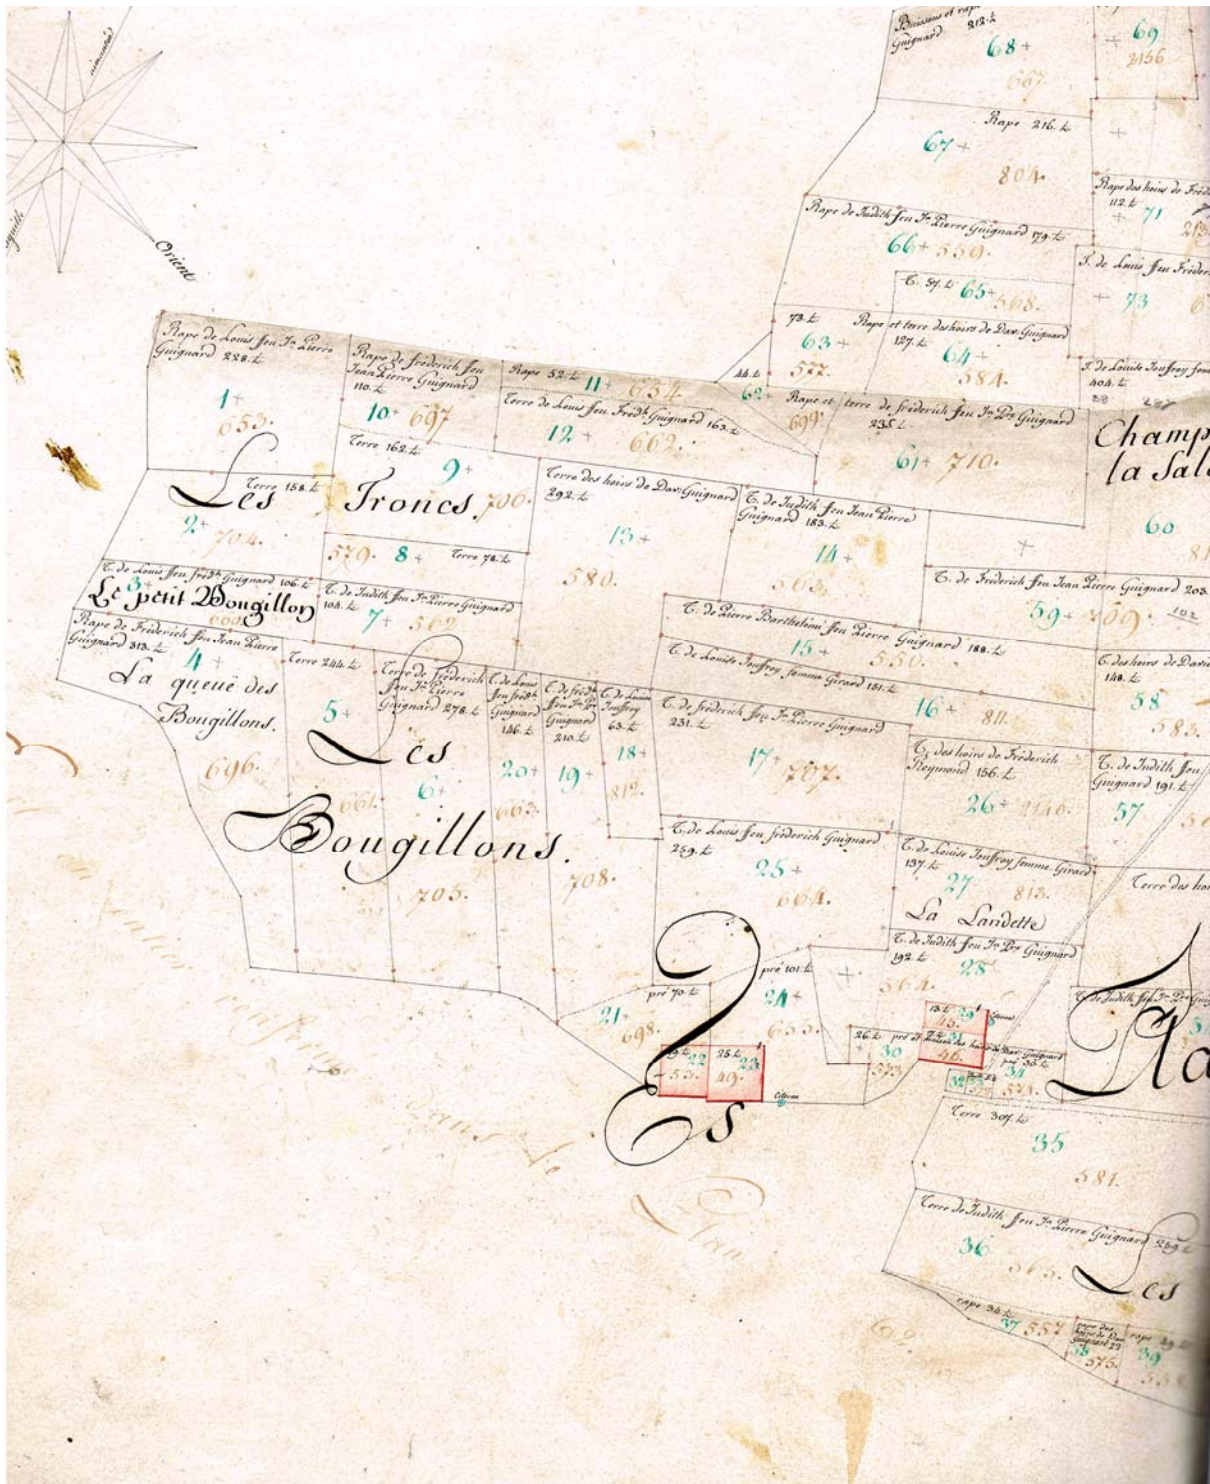 Orient
Guignard 212.₶
68+
667.
69
2156
Rape 216.₶
67+
804.
Rape des hoirs de
112.₶
71
Rape de Judith feu Jn. Pierre Guignard 179.₶
66+ 559.
T. 57.₶ 65+ 568.
T. de Louis feu
73
73.₶
63+
577.
Rape et terre des hoirs de Dav: Guignard
127.₶
64+
584.
44.₶
62+
699.
T. de Louise Jouffroy
404.₶
Rape et terre de fréderich feu Jn. Pre. Guignard
235.₶
61+ 710.
Champ
la Sal
60
Rape de Louis feu Jn. Pierre
Guignard 228.₶
1+
653.
Rape de fréderich feu
Jean Pierre Guignard
110.₶
10+ 697
Rape 52.₶ 11+ 654.
Terre de Louis feu Fredk. Guignard 163.₶
12+ 662.
Terre 162.₶
9+
706.
Les Troncs.
Terre 158.₶
2+
704.
579. 8+ Terre 78.₶
Terre des hoirs de Dav: Guignard
292.₶
13+
580.
T. de Judith feu Jean Pierre
Guignard 183.₶
14+
563.
T. de Fréderich feu Jean Pierre Guignard 203.
59+ 709.
102
T. de Louis feu fredk. Guignard 106.₶
3+
Le petit Bougillon
T. de Judith feu Jn. Pierre Guignard
104.₶
7+ 562.
T. de Pierre Barthelemi feu Pierre Guignard 188.₶
15+ 550.
T. de Louise Jouffroy femme Girard 151.₶
16+ 811.
T. des hoirs de David
148.₶
58
583.
Rape de Fréderich feu Jean Pierre
Guignard 313.₶
4+
La queuë des
Bougillons.
696.
Terre 244.₶
5+
661.
Terre de fréderich
feu Jn. Pierre
Guignard 278.₶
6+
705.
T. de Louis
feu fredk.
Guignard
146.₶
20+
663.
T. de fredk.
feu Jn. Pre.
Guignard
210.₶
19+
708.
T. de Louise
Jouffroy
63.₶
18+
812.
T. de fréderich feu Jn. Pierre Guignard
231.₶
17+
707.
T. des hoirs de Fréderich
Reymond 156.₶
26+ 2140.
T. de Judith feu
Guignard 191.₶
57
Les
Bougillons.
T. de Louis feu fréderich Guignard
259.₶
25+
664.
T. de Louise Jouffroy femme Girard
137.₶
27
813.
La Laridette
Terre des
T. de Judith feu Jn. Pre. Guignard
192.₶
28
564.
pré 101.₶
24+
655.
pré 70.₶
21+
698.
9.₶ 22
53.
25.₶ 23
49.
Citerne
13.₶ 29
45.
31
46.
Citerne
26.₶
30
573.
32
34
574.
T. de Judith feu Jn. Pre.
Es
Terre 307.₶
35
581.
Terre de Judith feu Jn. Pierre Guignard 259.₶
36
565.
Les
rape 34.₶
37 557
rape des
hoirs de Dav:
Guignard 22
38
575.
rape
39
dans le
Plan